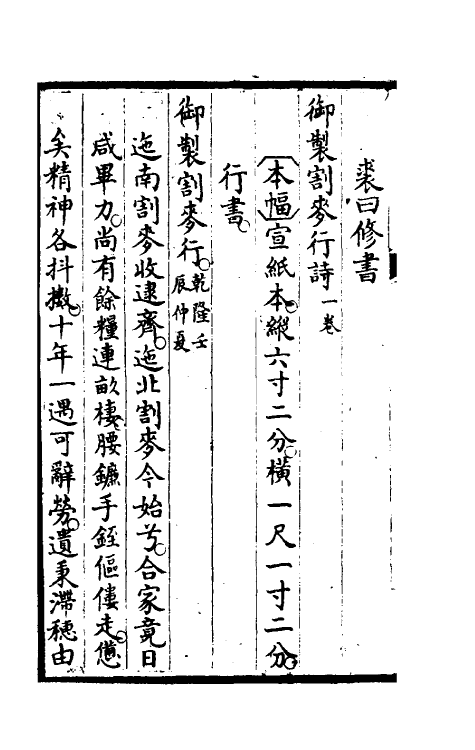 裘曰修書
御製割麥行詩一卷
本幅宣紙本縱六寸二分橫一尺一寸二分
行書
御製割麥行乾隆壬辰仲夏
迤南割麥收逮齊迤北割麥今始兮合家竟日
咸畢力尚有餘糧連畝棲腰鐮手銍傴僂走憊
矣精神各抖擻十年一遇可辭勞遺秉滯穗由